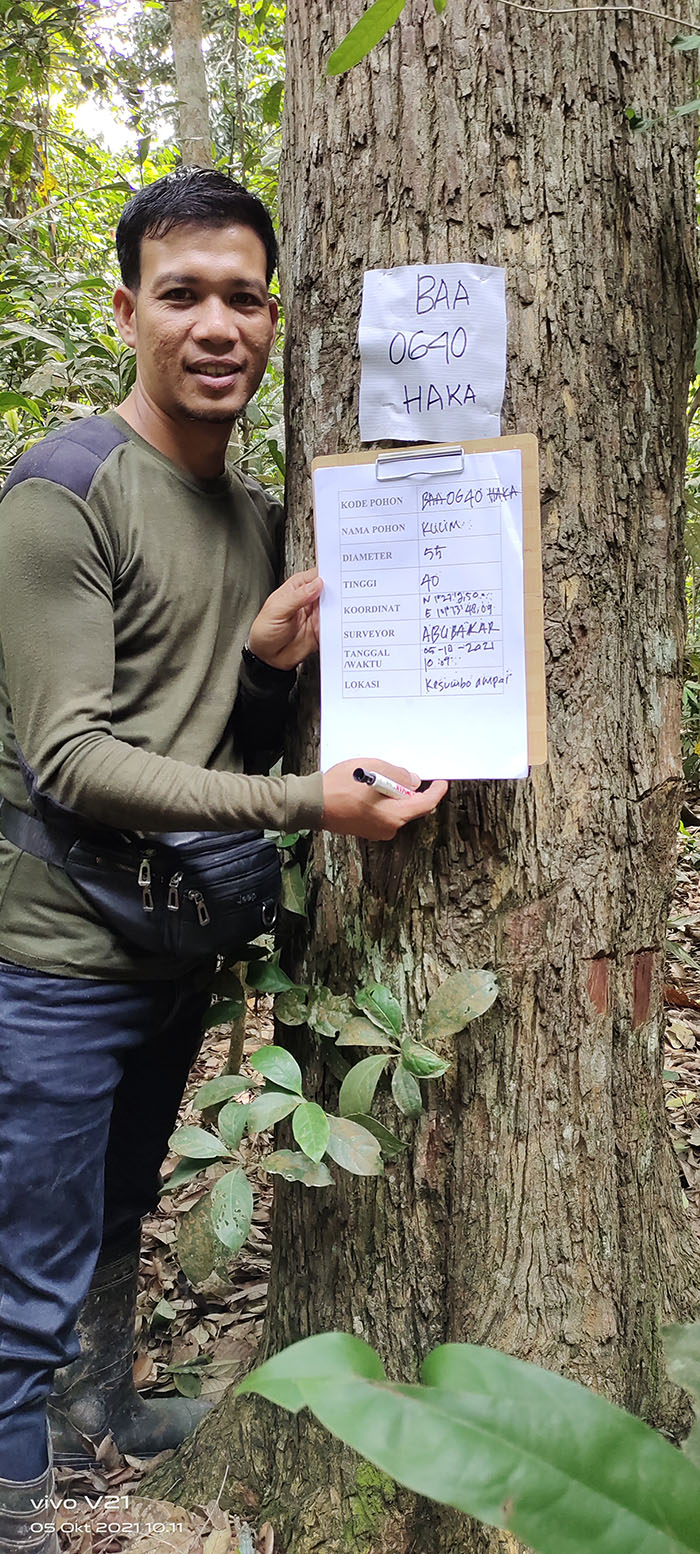 BAA
0640
HAKA
KODE POHON BAA 0640 HAKA
NAMA POHON KULIM
DIAMETER 55
TINGGI 40
KOORDINAT
SURVEYOR ABUBAKAR
TANGGAL 05-10-2021
/WAKTU 10:09
LOKASI Kesumbo ampai
Jeep
vivo V21
05 Okt 2021 10.11